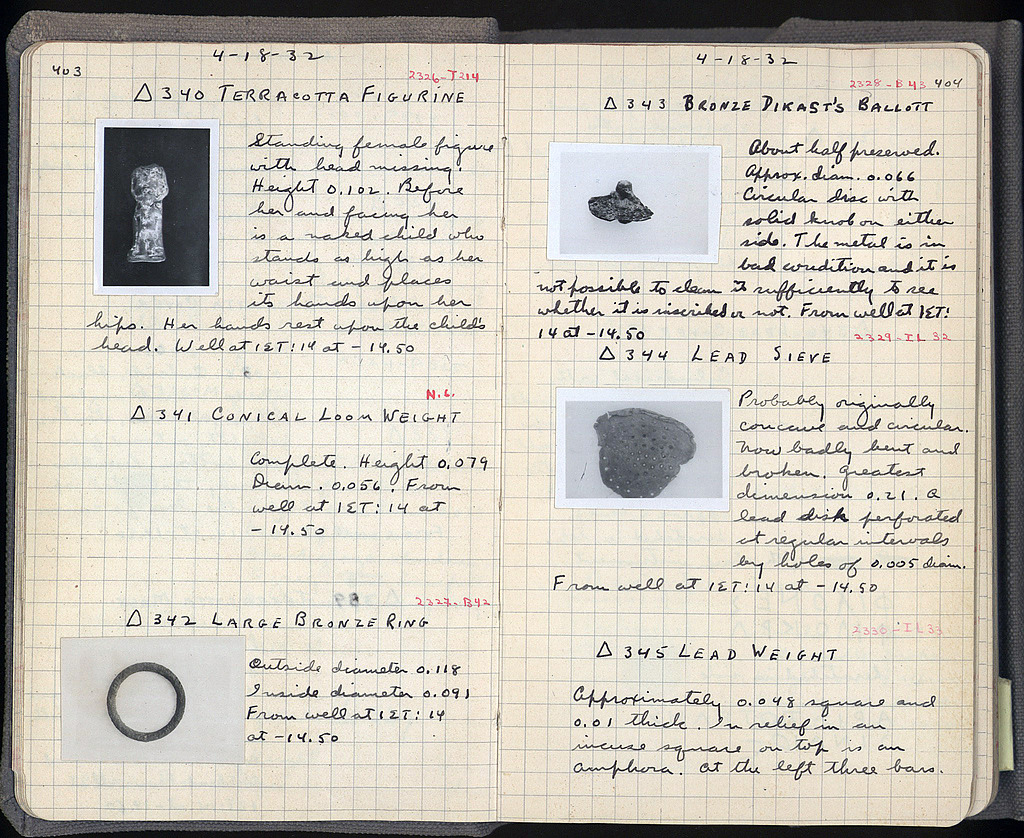 4-18-32
403
2326-T214
Δ 340 TERRACOTTA FIGURINE
Standing female figure
with head missing.
Height 0.102. Before
her and facing her
is a naked child who
stands as high as her
waist and places
its hands upon her
hips. Her hands rest upon the child's
head. Well at 12T:14 at -14.50
N.C.
Δ 341 CONICAL LOOM WEIGHT
Complete. Height 0.079
Diam. 0.056. From
well at at
-14.50
2327-B42
Δ 342 LARGE BRONZE RING
Outside diameter 0.118
Inside diameter 0.091
From well at
at -14.50
4-18-32
2328-B43 404
Δ 343 BRONZE DIKAST'S BALLOTT
About half preserved.
Approx. diam. 0.066
Circular disc with
solid knob on either
side. The metal is in
bad condition and it is
not possible to clean it sufficiently to see
whether it is inscribed or not. From well at
14 at -14.50
2329-IL 32
Δ 344 LEAD SIEVE
Probably originally
concave and circular.
Now badly bent and
broken. Greatest
dimension 0.21. A
lead disk perforated
at regular intervals
by holes of 0.005 diam.
From well at at -14.50
2330-IL33
Δ 345 LEAD WEIGHT
Approximately 0.048 square and
0.01 thick. In relief in an
incuse square on top is an
amphora. At the left three bars.